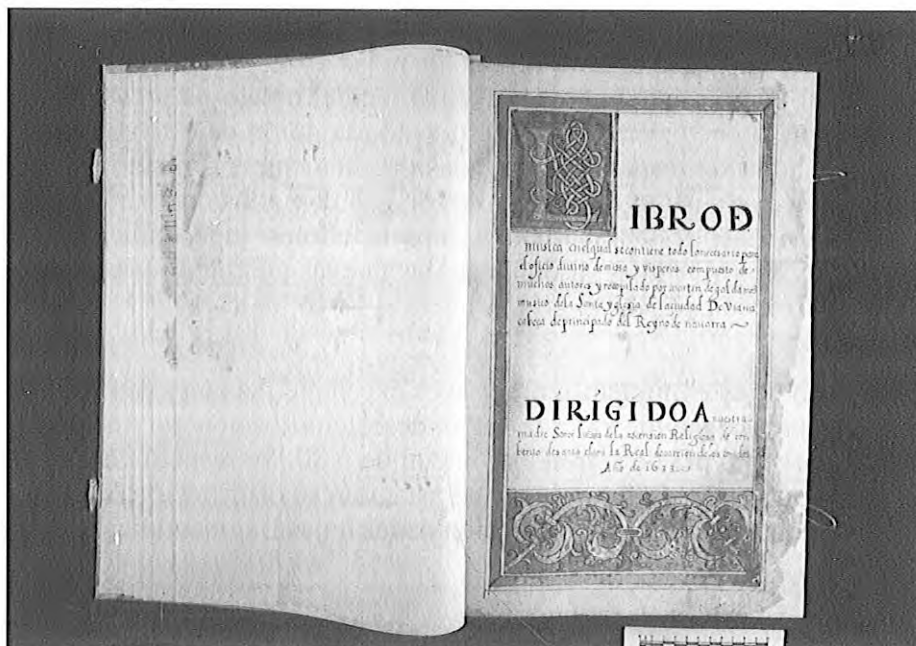 LIBRO Đ
musica enelqual secontiene todo lonecesario para
el oficio divino demisa y visperas compuesto de
muchos autores y recopilado por martin de goldaraz
musico dela Santa yglesia de laciudad De Viana
cabeça deprincipado del Reyno de navarra
DIRIGIDO A nuestra
madre Soror luisa dela ascension Religiosa de con
bento de santa clara la Real de carrion de los condes
Año de 1633